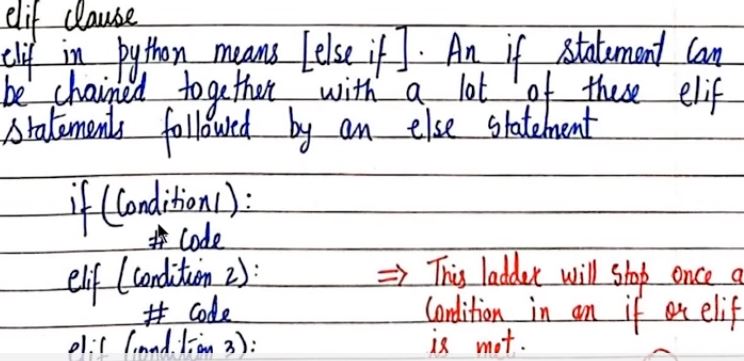 elif clause
elif in python means [else if]. An if statement can
be chained together with a lot of these elif
statements followed by an else statement
if (Condition1):
# Code
elif (Condition 2):
# Code
elif (Condition 3):
⇒ This ladder will stop once a
Condition in an if or elif
is met.